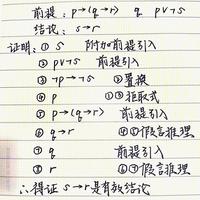 前提: p→(q→r) q p∨¬s
结论: s→r
证明: ① s 附加前提引入
② p∨¬s 前提引入
③ ¬p→¬s ②置换
④ p ①③拒取式
⑤ p→(q→r) 前提引入
⑥ q→r ④⑤假言推理
⑦ q 前提引入
⑧ r ⑥⑦假言推理
∴得证 s→r是有效结论